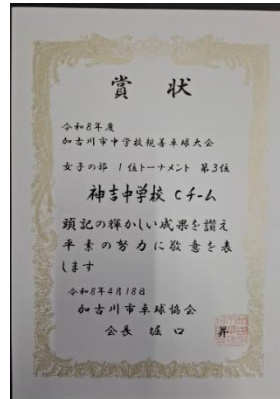 賞状
令和8年度
加古川市中学校親善卓球大会
女子の部 1位トーナメント 第3位
神吉中学校 Cチーム
頭記の輝かしい成果を讃え
平素の努力に敬意を表
します
令和8年4月18日
加古川市卓球協会
会長 堀口 昇